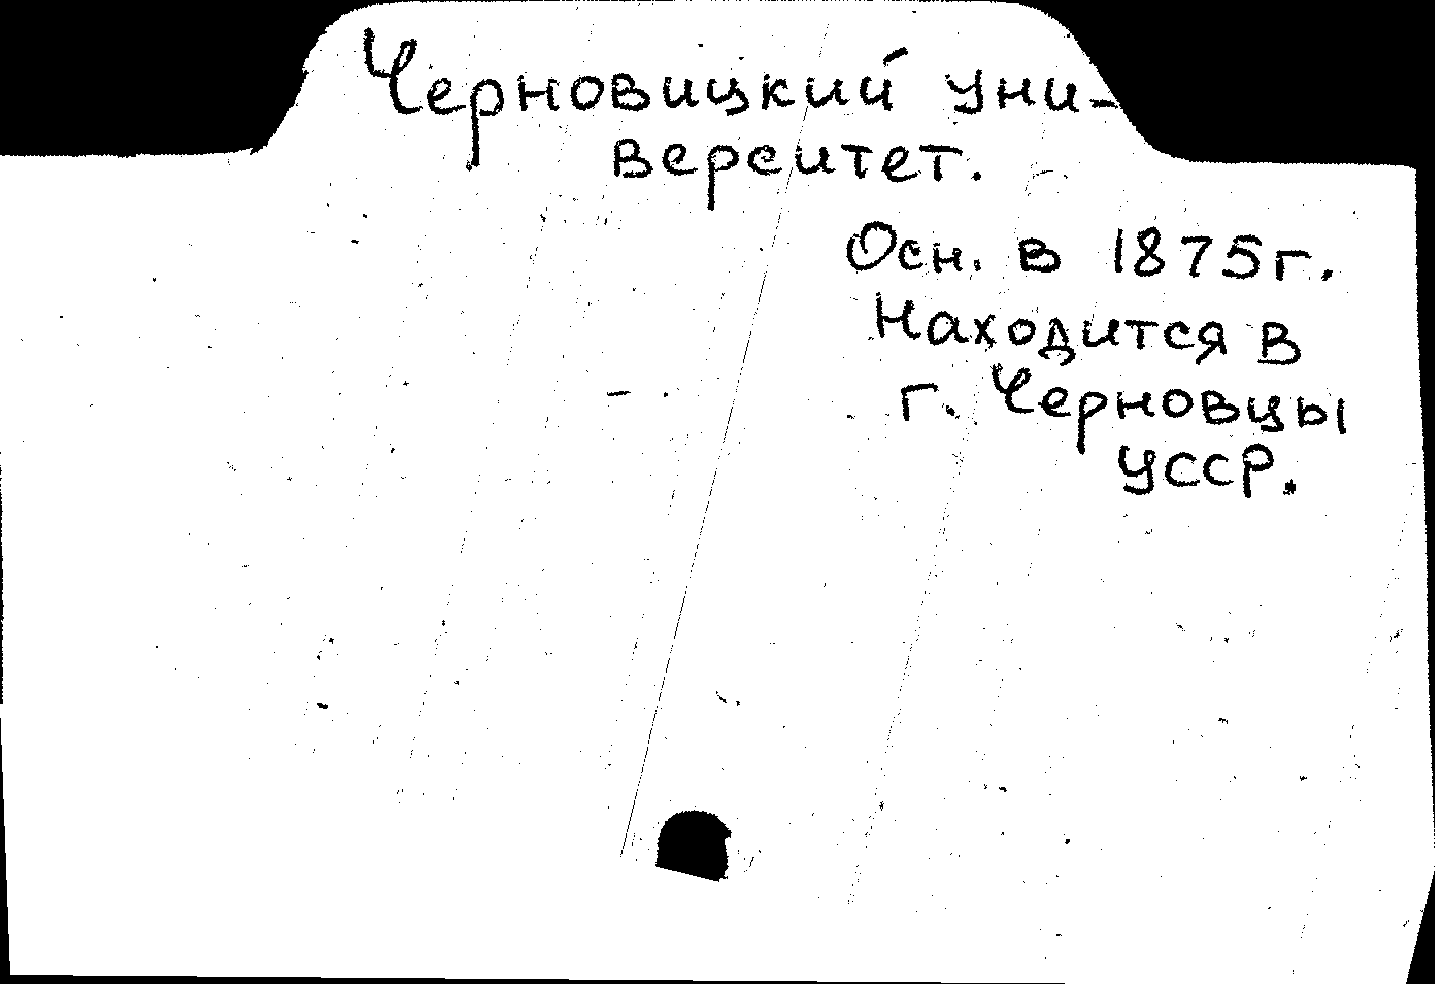 Черновицкий уни-
верситет.
Осн. в 1875г.
Находится в
г. Черновцы
УССР.